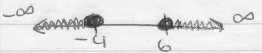 -∞ ∞
-4 6